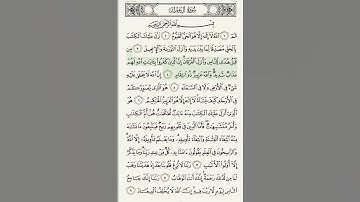 سُورَةُ آلِ عِمْرَانَ
بِسْمِ ٱللَّهِ ٱلرَّحْمَٰنِ ٱلرَّحِيمِ
الٓمٓ ١ ٱللَّهُ لَآ إِلَٰهَ إِلَّا هُوَ ٱلْحَىُّ ٱلْقَيُّومُ ٢ نَزَّلَ عَلَيْكَ ٱلْكِتَٰبَ
بِٱلْحَقِّ مُصَدِّقًا لِّمَا بَيْنَ يَدَيْهِ وَأَنزَلَ ٱلتَّوْرَىٰةَ وَٱلْإِنجِيلَ ٣ مِن
قَبْلُ هُدًى لِّلنَّاسِ وَأَنزَلَ ٱلْفُرْقَانَ ۗ إِنَّ ٱلَّذِينَ كَفَرُوا۟ بِـَٔايَٰتِ ٱللَّهِ لَهُمْ
عَذَابٌ شَدِيدٌ ۗ وَٱللَّهُ عَزِيزٌ ذُو ٱنتِقَامٍ ٤ إِنَّ ٱللَّهَ لَا يَخْفَىٰ عَلَيْهِ
شَىْءٌ فِى ٱلْأَرْضِ وَلَا فِى ٱلسَّمَآءِ ٥ هُوَ ٱلَّذِى يُصَوِّرُكُمْ
فِى ٱلْأَرْحَامِ كَيْفَ يَشَآءُ ۚ لَآ إِلَٰهَ إِلَّا هُوَ ٱلْعَزِيزُ ٱلْحَكِيمُ ٦ هُوَ
ٱلَّذِىٓ أَنزَلَ عَلَيْكَ ٱلْكِتَٰبَ مِنْهُ ءَايَٰتٌ مُّحْكَمَٰتٌ هُنَّ أُمُّ ٱلْكِتَٰبِ
وَأُخَرُ مُتَشَٰبِهَٰتٌ ۖ فَأَمَّا ٱلَّذِينَ فِى قُلُوبِهِمْ زَيْغٌ فَيَتَّبِعُونَ مَا تَشَٰبَهَ
مِنْهُ ٱبْتِغَآءَ ٱلْفِتْنَةِ وَٱبْتِغَآءَ تَأْوِيلِهِۦ ۗ وَمَا يَعْلَمُ تَأْوِيلَهُۥٓ إِلَّا ٱللَّهُ ۗ
وَٱلرَّٰسِخُونَ فِى ٱلْعِلْمِ يَقُولُونَ ءَامَنَّا بِهِۦ كُلٌّ مِّنْ عِندِ رَبِّنَا ۗ وَمَا يَذَّكَّرُ
إِلَّآ أُو۟لُوا۟ ٱلْأَلْبَٰبِ ٧ رَبَّنَا لَا تُزِغْ قُلُوبَنَا بَعْدَ إِذْ هَدَيْتَنَا وَهَبْ
لَنَا مِن لَّدُنكَ رَحْمَةً ۚ إِنَّكَ أَنتَ ٱلْوَهَّابُ ٨ رَبَّنَآ إِنَّكَ جَامِعُ
ٱلنَّاسِ لِيَوْمٍ لَّا رَيْبَ فِيهِ ۚ إِنَّ ٱللَّهَ لَا يُخْلِفُ ٱلْمِيعَادَ ٩